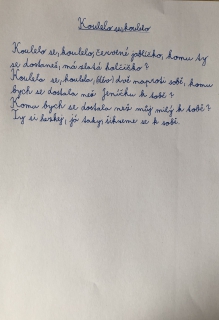 Koulelo se, koulelo
Koulelo se, koulelo, červené jablíčko, komu ty
se dostaneš, má zlatá holčičko?
Koulela se, koulela, dvě naproti sobě, komu
bych se dostala než Jeníčku k tobě?
Komu bych se dostala než můj milý k tobě?
Ty si lezkej, já taky, sekneme se k sobě.